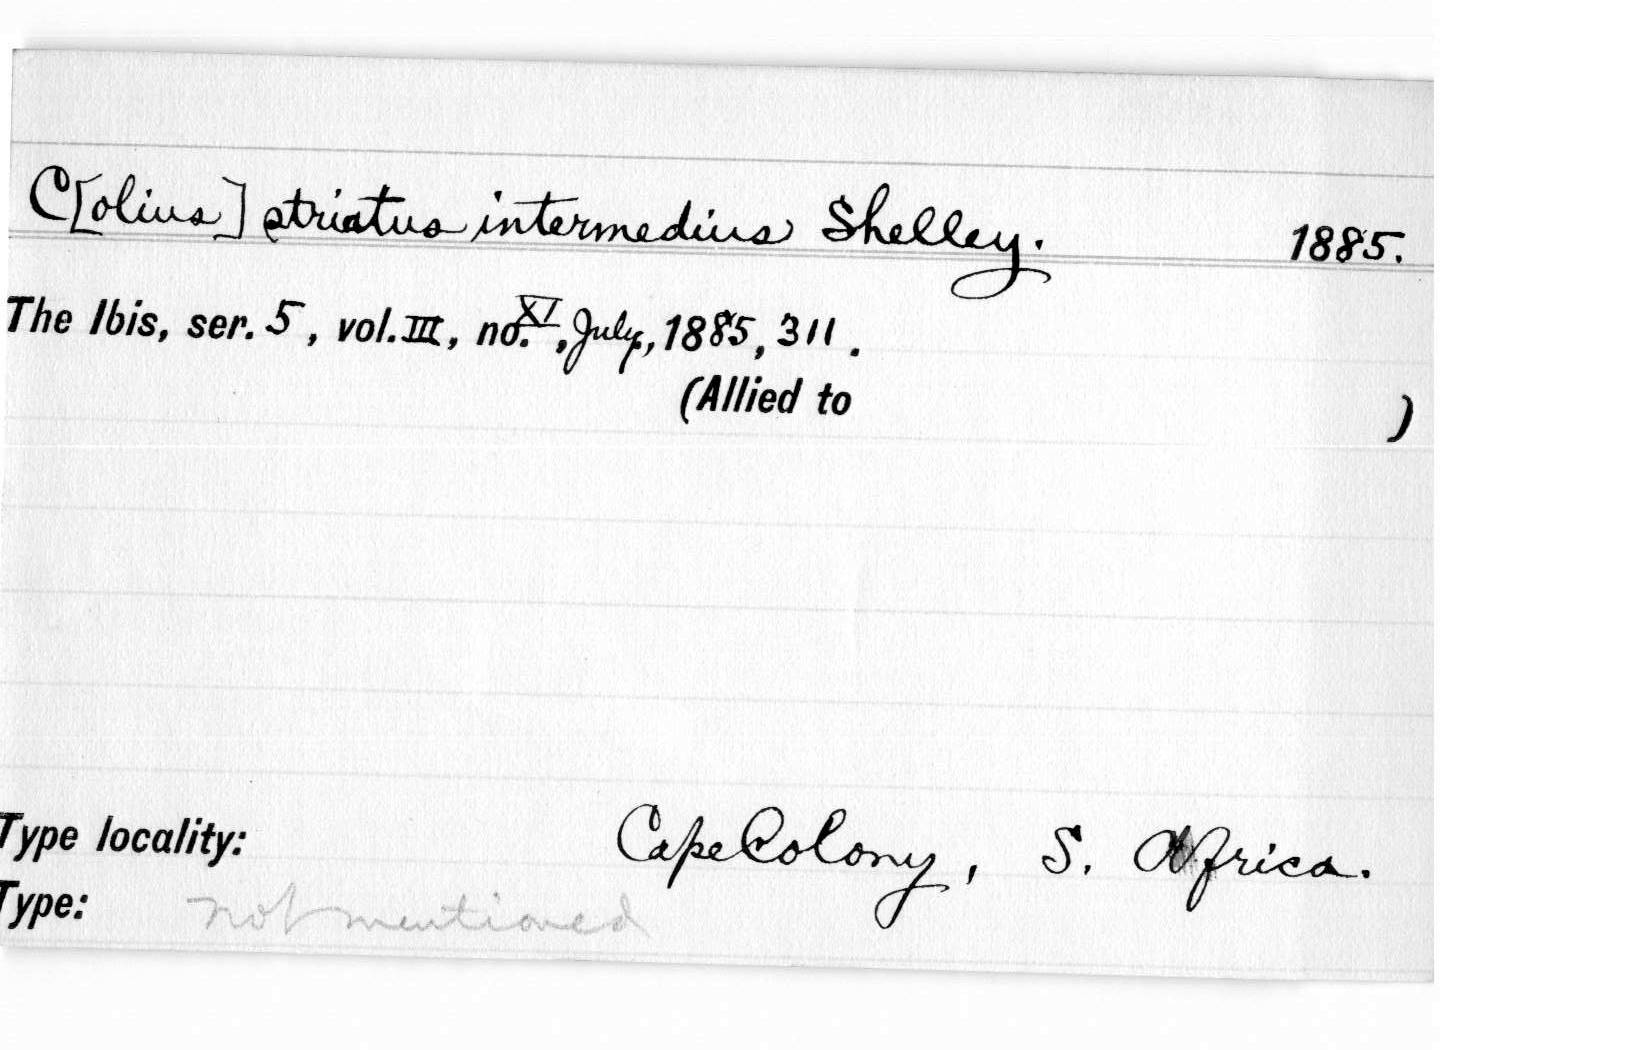 C[olius] striatus intermedius Shelley. 1885.
The Ibis, ser. 5, vol. III, no. XI, July, 1885, 311.
(Allied to )
Type locality: Cape Colony, S. Africa.
Type: not mentioned